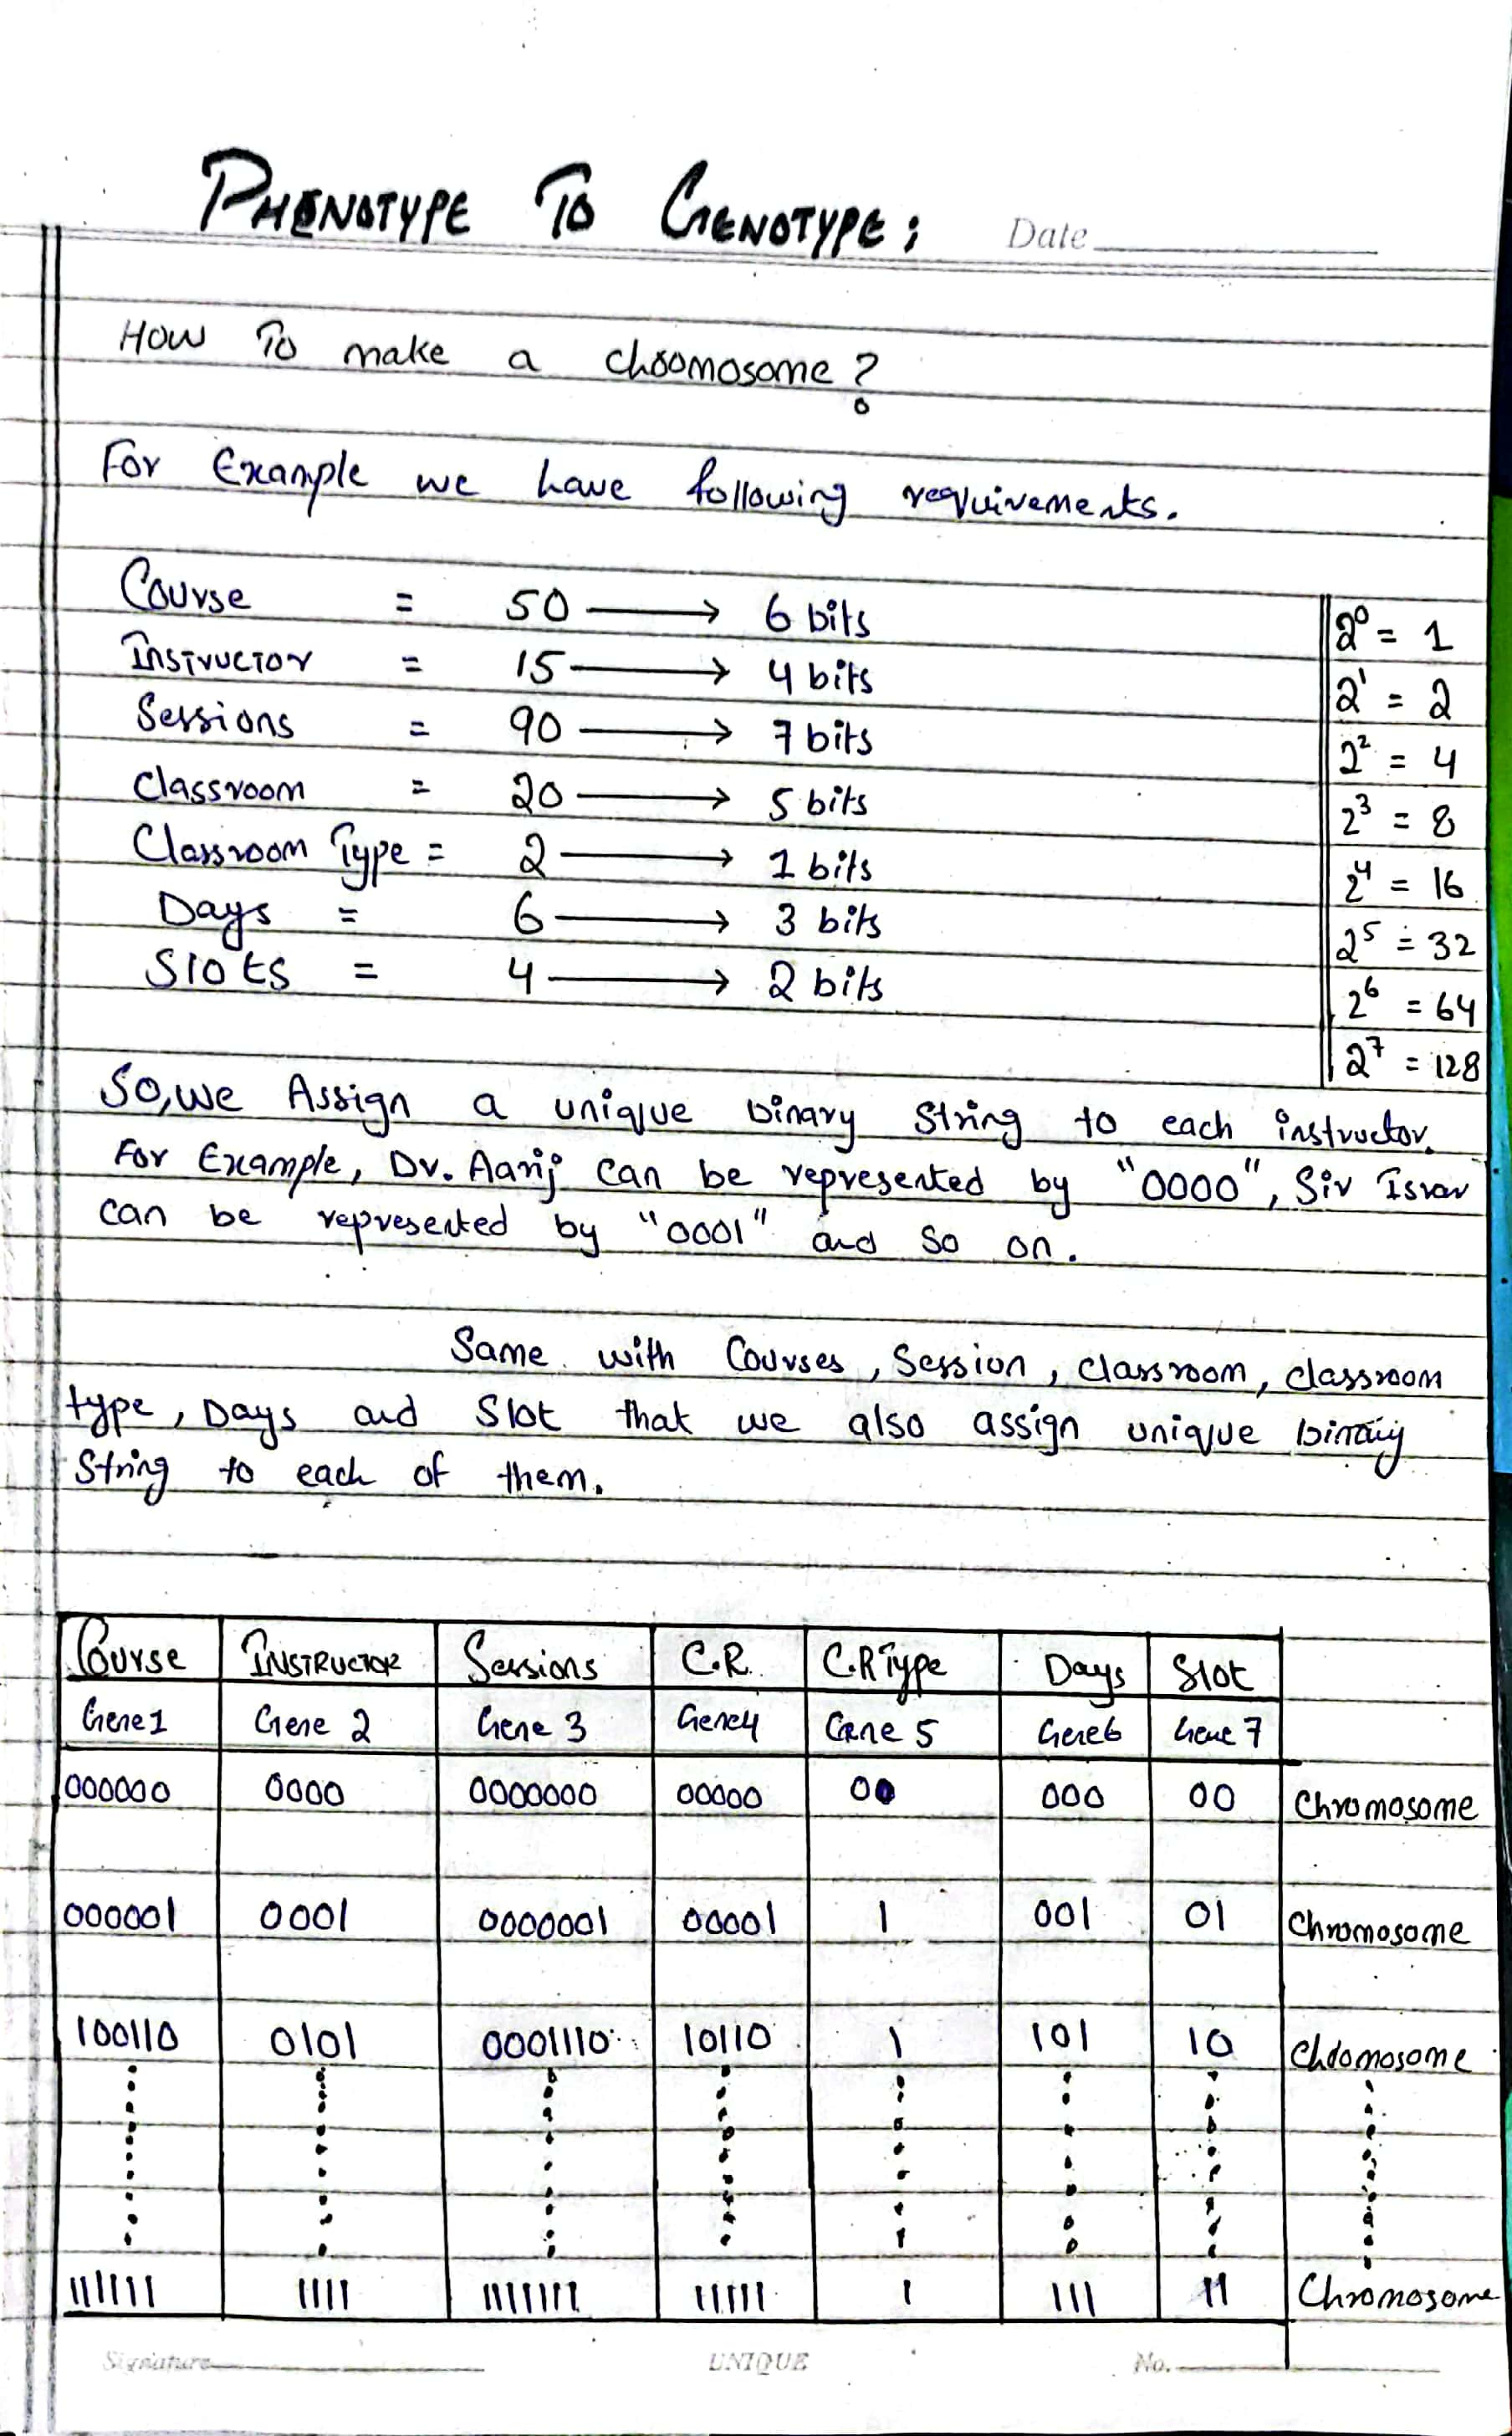 PHENOTYPE TO GENOTYPE:
Date
How To make a chromosome?
For Example we have following requirements.
Course = 50 → 6 bits
Instructor = 15 → 4 bits
Sessions = 90 → 7 bits
Classroom = 20 → 5 bits
Classroom Type = 2 → 1 bits
Days = 6 → 3 bits
Slots = 4 → 2 bits
2⁰ = 1
2¹ = 2
2² = 4
2³ = 8
2⁴ = 16
2⁵ = 32
2⁶ = 64
2⁷ = 128
So, we Assign a unique binary string to each instructor.
For Example, Dr. Aarij can be represented by "0000", Sir Israr
can be represented by "0001" and so on.
Same with Courses, Session, classroom, classroom
type, Days and Slot that we also assign unique binary
String to each of them.
Course INSTRUCTOR Sessions C.R. C.R Type Days Slot
Gene 1 Gene 2 Gene 3 Gene 4 Gene 5 Gene 6 Gene 7
000000 0000 0000000 00000 00 000 00 Chromosome
000001 0001 0000001 00001 1 001 01 Chromosome
100110 0101 0001110 10110 1 101 10 Chromosome
111111 1111 1111111 11111 1 111 11 Chromosome
Signature UNIQUE No.